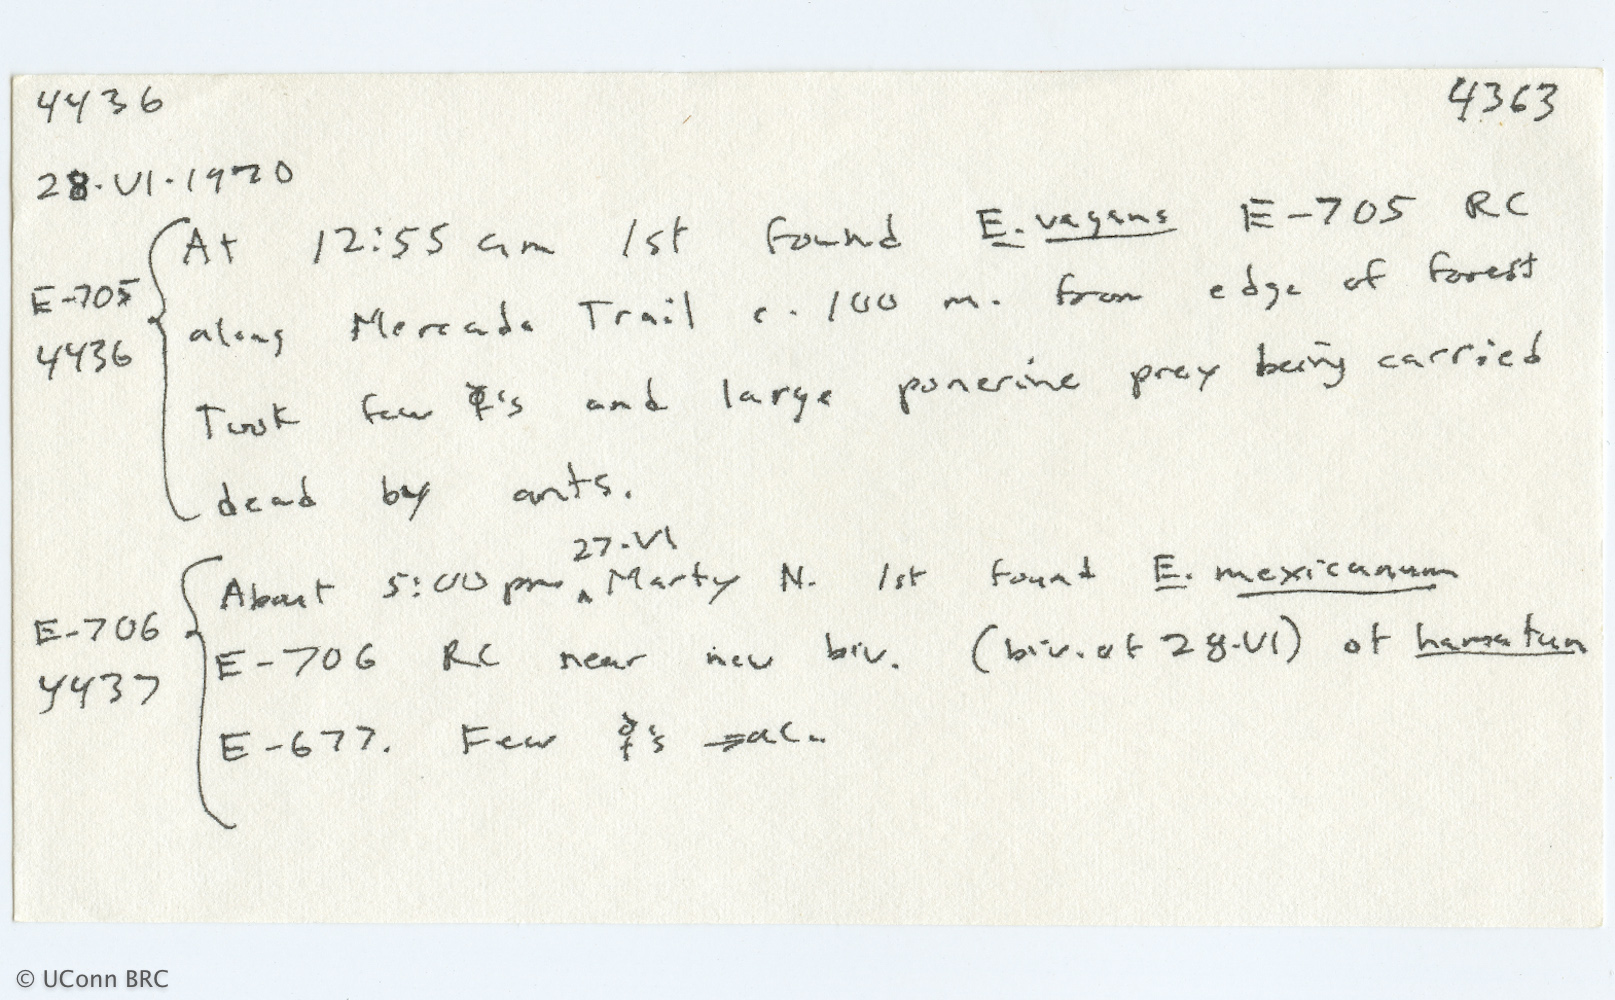 4436 4363
28.VI.1970
At 12:55 am 1st found E. vagans E-705 RC
E-705
along Mercada Trail c. 100 m. from edge of forest
4436
Took few ☿'s and large ponerine prey being carried
dead by ants.
27.VI
About 5:00 pm ‸ Marty N. 1st found E. mexicanum
E-706
E-706 RC near new biv. (biv. of 28-VI) of hamatum
4437
E-677. Few ☿'s → alc.
© UConn BRC